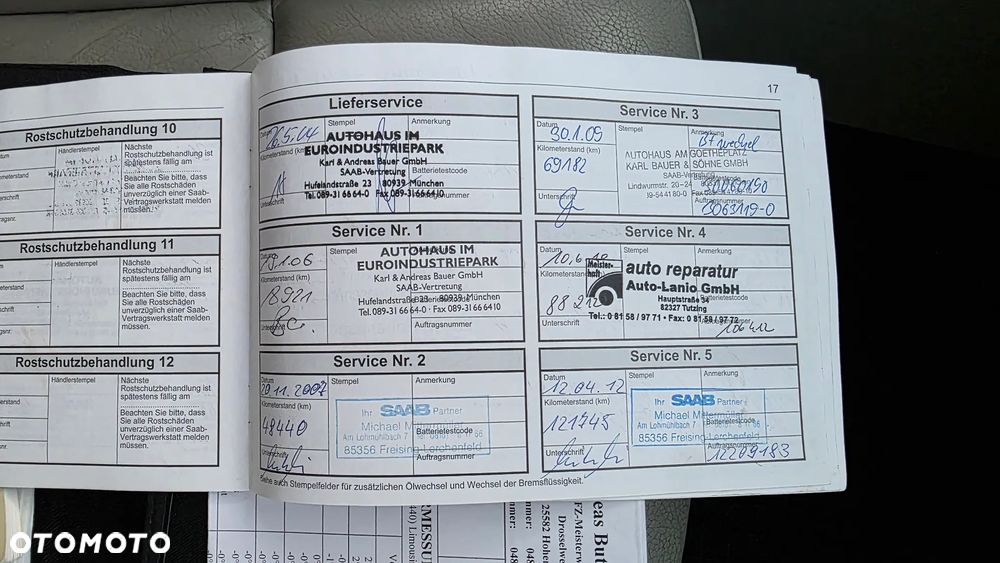 17
Rostschutzbehandlung 10
Händlerstempel
Nächste
Rostschutzbehandlung ist
spätestens fällig am
Beachten Sie bitte, dass
Sie alle Rostschäden
unverzüglich einer Saab-
Vertragswerkstatt melden
müssen.
Rostschutzbehandlung 11
Händlerstempel
Nächste
Rostschutzbehandlung ist
spätestens fällig am
Beachten Sie bitte, dass
Sie alle Rostschäden
unverzüglich einer Saab-
Vertragswerkstatt melden
müssen.
Rostschutzbehandlung 12
Händlerstempel
Nächste
Rostschutzbehandlung ist
spätestens fällig am
Beachten Sie bitte, dass
Sie alle Rostschäden
unverzüglich einer Saab-
Vertragswerkstatt melden
müssen.
Lieferservice
Datum
Stempel
Anmerkung
26.5.04
AUTOHAUS IM
EUROINDUSTRIEPARK
Kilometerstand (km)
Karl & Andreas Bauer GmbH
SAAB-Vertretung
Batterietestcode
Hufelandstraße 23 80939 München
Tel. 089-31 66 64-0 Fax 089-31 66 64 10
Unterschrift
Service Nr. 1
Datum
Stempel
Anmerkung
AUTOHAUS IM
EUROINDUSTRIEPARK
Kilometerstand (km)
Karl & Andreas Bauer GmbH
SAAB-Vertretung
18921
Batterietestcode
Hufelandstraße 23 80939 München
Tel. 089-31 66 64-0 · Fax 089-31 66 64 10
Unterschrift
Auftragsnummer
Service Nr. 2
Datum
Stempel
Anmerkung
20.11.2007
Kilometerstand (km)
48440
Ihr SAAB Partner
Michael
Am Lohmühlbach 7
Batterietestcode
85356 Freising-Lerchenfeld
Unterschrift
Auftragsnummer
Service Nr. 3
Datum
Stempel
Anmerkung
30.1.09
Kilometerstand (km)
AUTOHAUS AM GOETHEPLATZ
KARL BAUER & SÖHNE GMBH
69182
Lindwurmstr. 20-24
Unterschrift
Auftragsnummer
3063119-0
Service Nr. 4
Datum
Stempel
Anmerkung
Kilometerstand (km)
Meister-
haft
auto reparatur
Auto-Lanio GmbH
Batterietestcode
Hauptstraße 34
82327 Tutzing
Unterschrift
Tel.: 0 81 58 / 97 71 • Fax: 0 81 58 / 97 72
106412
Service Nr. 5
Datum
Stempel
Anmerkung
12.04.12
Kilometerstand (km)
121745
Ihr SAAB Partner
Michael
Am Lohmühlbach 7
Batterietestcode
85356 Freising-Lerchenfeld
Unterschrift
Auftragsnummer
12209183
Siehe auch Stempelfelder für zusätzlichen Ölwechsel und Wechsel der Bremsflüssigkeit.
OTOMOTO